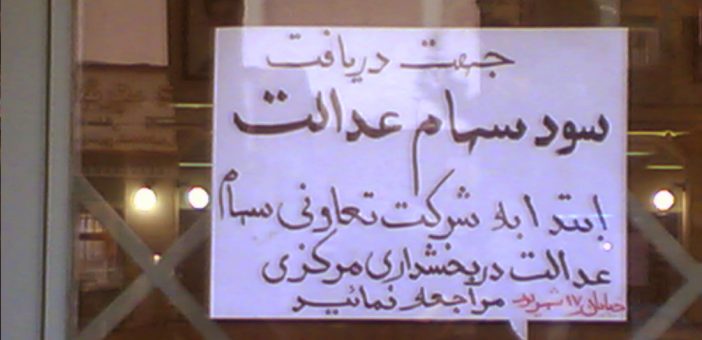 جهت دریافت
سود سهام عدالت
ابتدا به شرکت تعاونی سهام
عدالت در بخشداری مرکزی
خیابان ۱۷ شهریور مراجعه نمائید